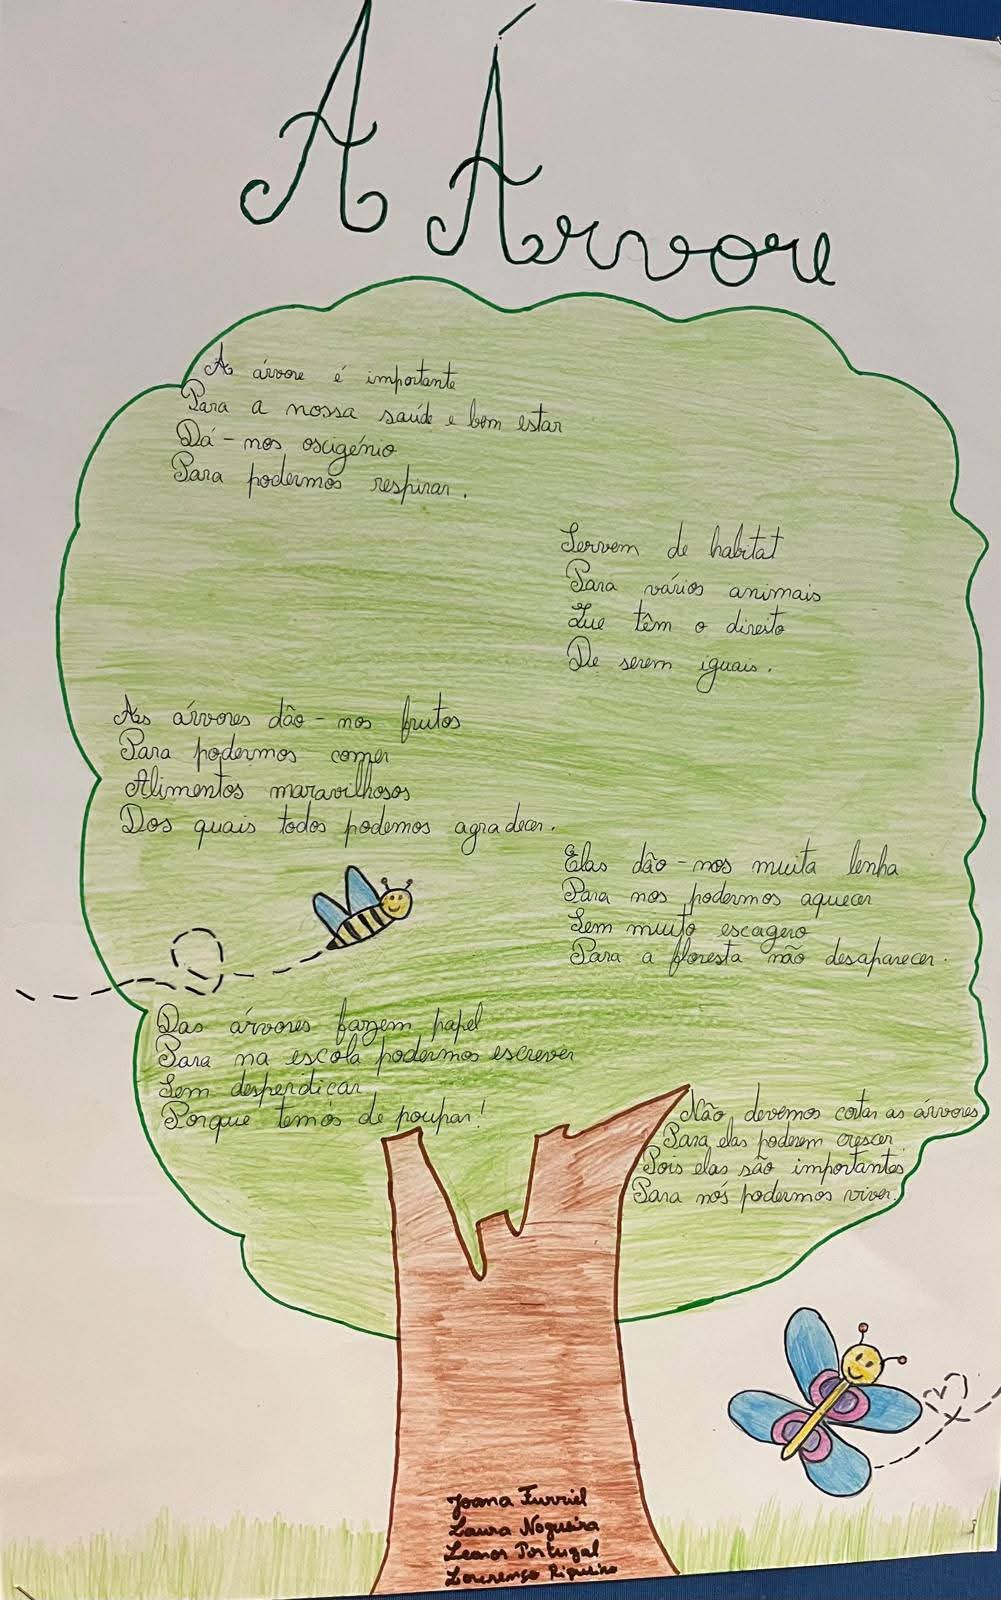 A Árvore
A árvore é importante
Para a nossa saúde e bem estar
Dá-nos oscigénio
Para podermos respirar.
Servem de habitat
Para vários animais
Que têm o direito
De serem iguais.
As árvores dão-nos frutos
Para podermos comer
Alimentos maravilhosos
Dos quais todos podemos agradecer.
Elas dão-nos muita lenha
Para nos podermos aquecer
Sem muito escagero
Para a floresta não desaparecer.
Das árvores fazem papel
Para na escola podermos escrever
Sem desperdiçar
Porque temos de poupar!
Não devemos cortar as árvores
Para elas poderem crescer
Pois elas são importantes
Para nós podermos viver.
Joana Furriel
Laura Nogueira
Leonor Portugal
Lourenço